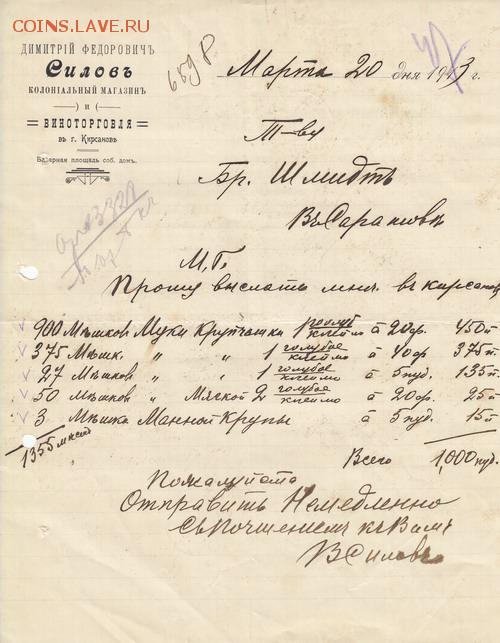 COINS.LAVE.RU
ДИМИТРІЙ ФЕДОРОВИЧЪ
СИЛОВЪ
КОЛОНІАЛЬНЫЙ МАГАЗИНЪ
и
ВИНОТОРГОВЛЯ
въ г. Кирсановѣ
Базарная площадь соб. домъ.
689 р.
Марта 20 дня 1913 г.
Т-ву
Бр. Шмидтъ
Въ Саратовѣ
М. Г.
Прошу выслать мнѣ въ Кирсановъ
900 Мѣшковъ Муки Крупчатки 1 голуб клеймо à 20 ф. 450 п
375 Мѣшк. " " 1 голубое клеймо à 40 ф 375 п.
27 Мѣшковъ " " 1 голубое клеймо à 5 пуд. 135 п
50 Мѣшковъ " Мяской 2 голубое клеймо à 20 ф. 25 п
3 Мѣшка Манной Крупы à 5 пуд. 15 п
1355 мѣстъ
Всего 1,000 пуд.
Пожалуйста
Отправить Немедленно
Съ Почтением къ Вамъ
В Силовъ